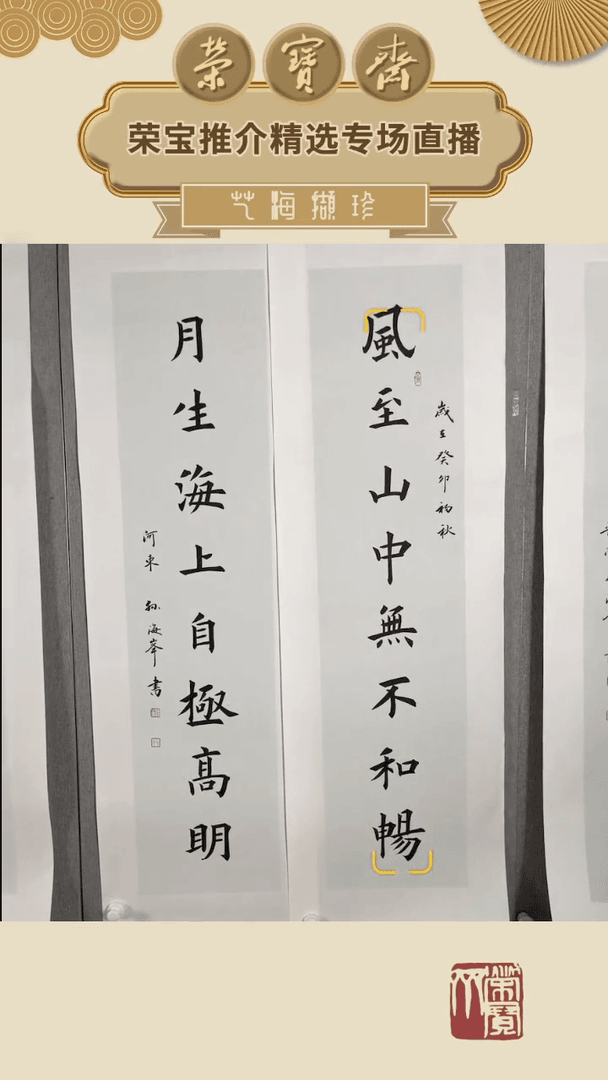 荣寳齋
荣宝推介精选专场直播
艺海撷珍
風至山中無不和暢
歲在癸卯初秋
月生海上自極高明
河東 孫海峯書